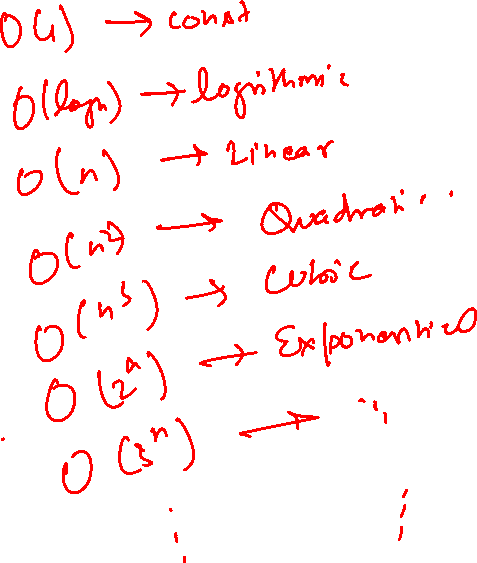 O(1) → const
O(logn) → logrithmic
O(n) → Linear
O(n²) → Quadratic
O(n³) → Cubic
O(2ⁿ) → Exponential
O(3ⁿ) → ''